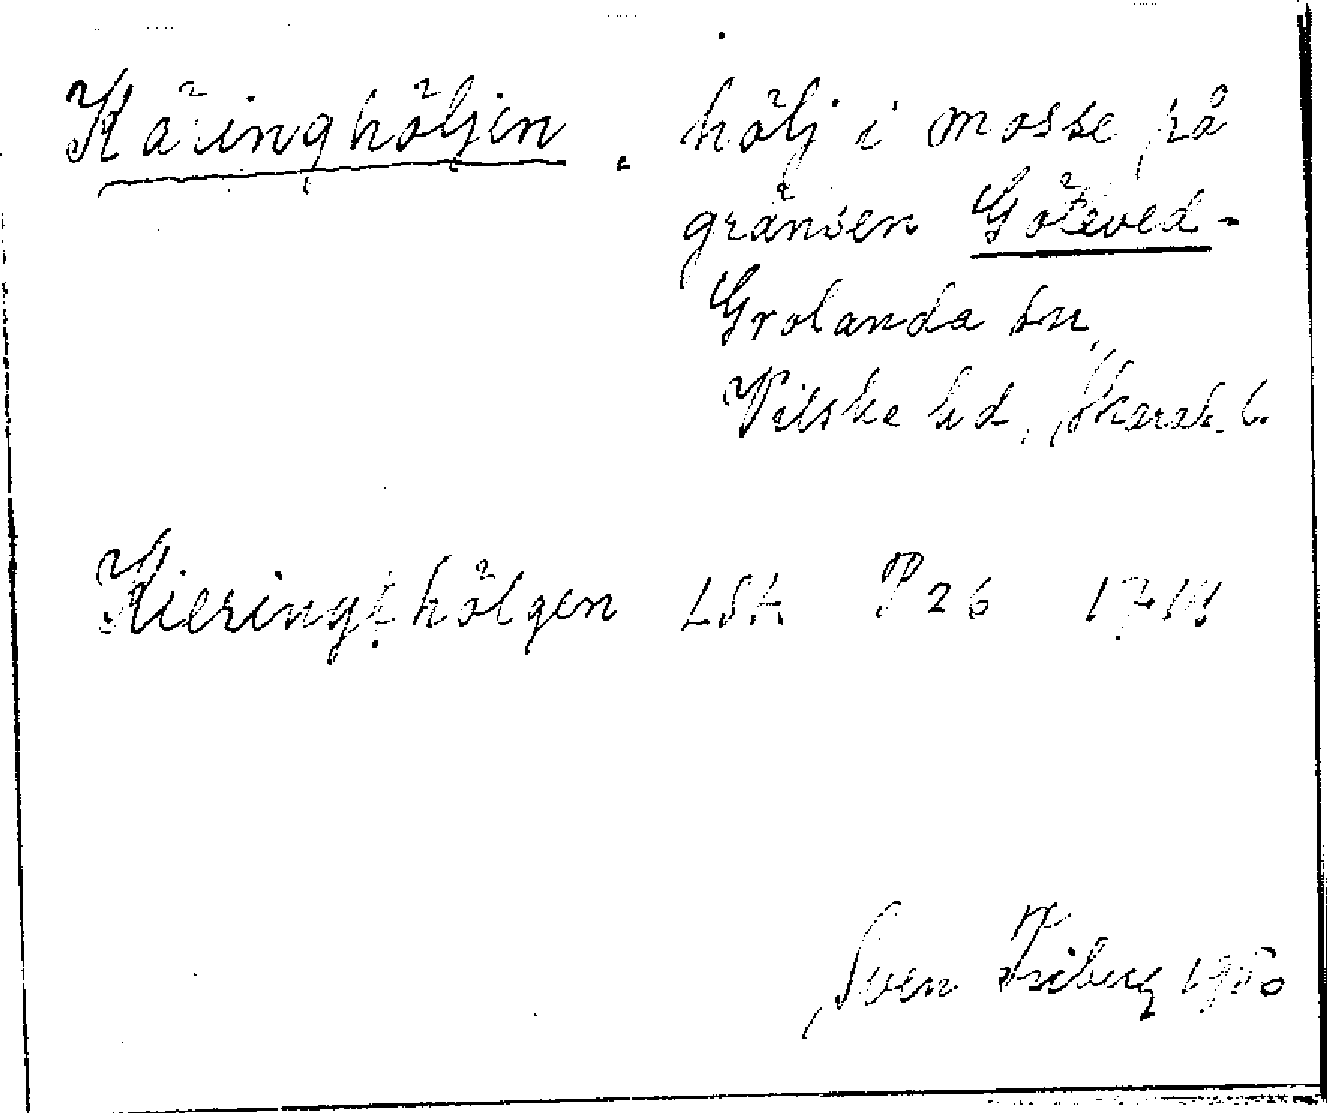 Käringhöljen. hölj i mosse på
gränsen Göteved-
Grolanda sn,
Vilske hd, Skarab. l.
Kierings hölgen LSA P26
Sven Friberg 1950